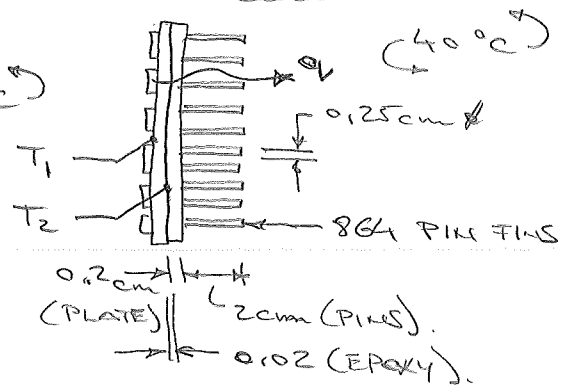 40 °C
°C
q
0.25cm ∅
T1
T2
864 PIN FINS
0.2cm
(PLATE)
2cm (PINS).
0.02 (EPOXY).